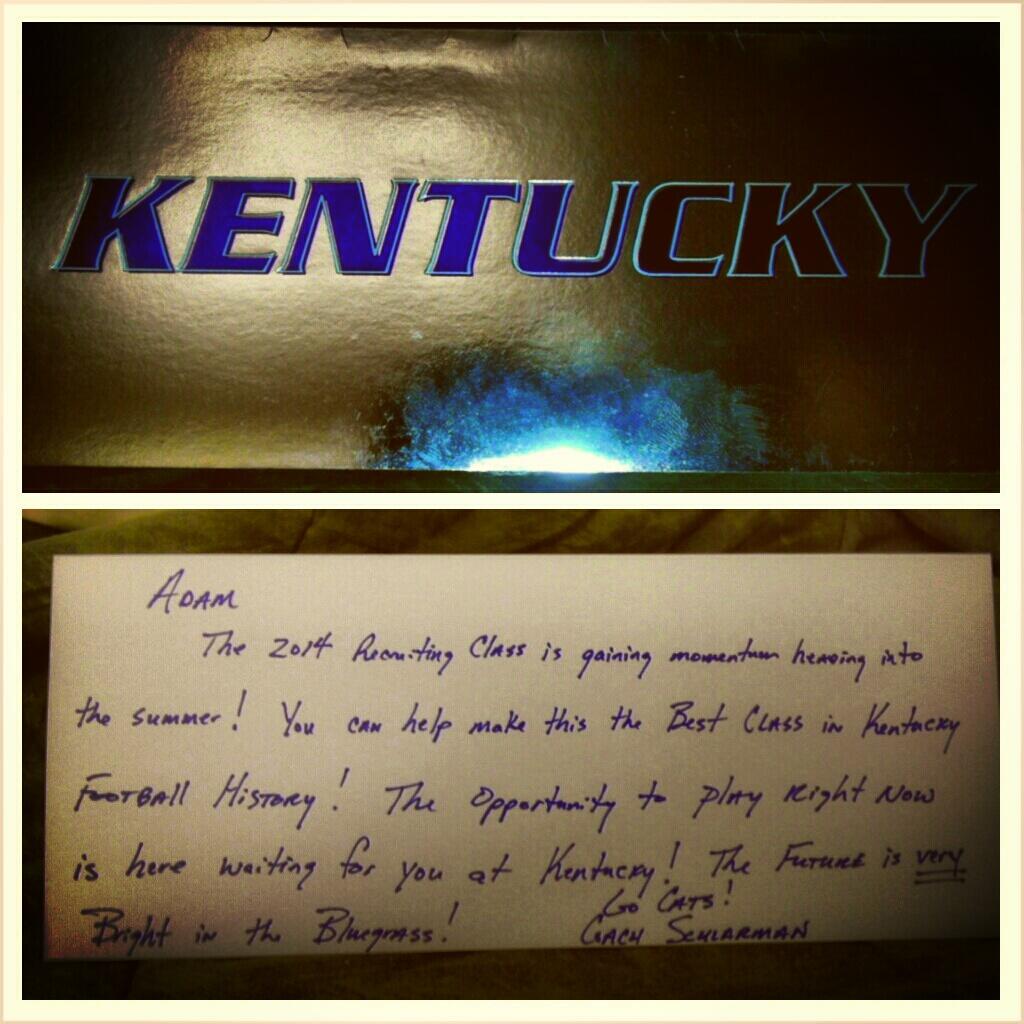 KENTUCKY
ADAM
The 2014 Recruiting Class is gaining momentum heading into
the summer! You can help make this the Best Class in Kentucky
Football History! The Opportunity to play Right Now
is here waiting for you at Kentucky! The Future is very
Bright in the Bluegrass!
Go Cats!
Coach Schlarman